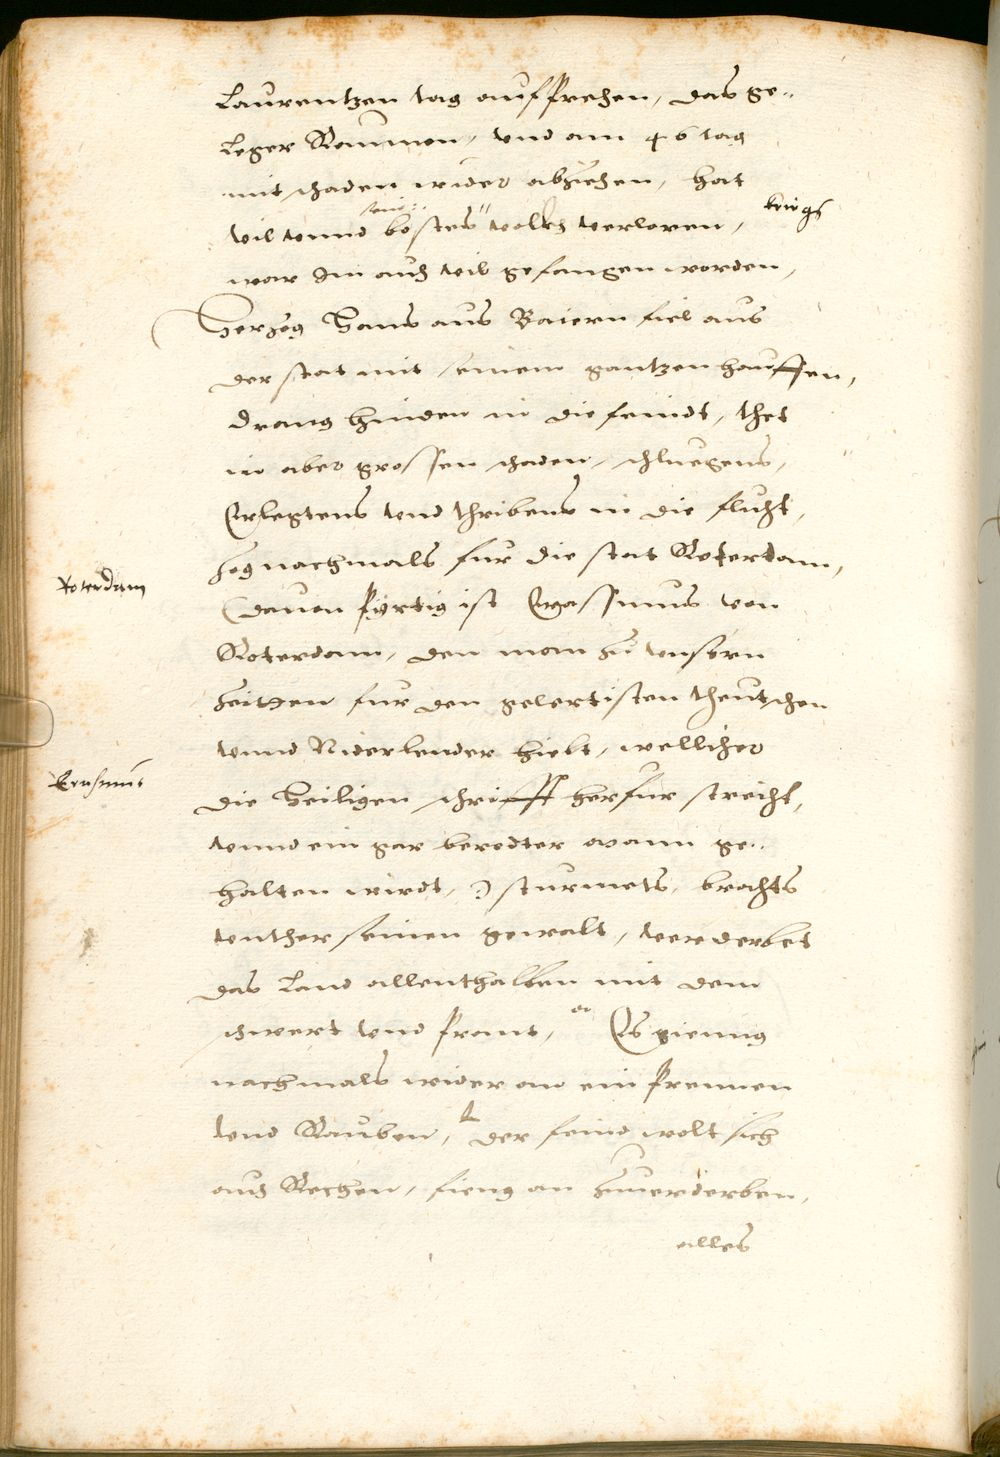 Laurentzen tag auffprechen, das ge=
leger Raumen, vnd am 46 tag
mit schaden wider abziehen, hat
vil vnnd bestes volkh verloren, kriegs
war Im auch vil gefangen worden,
Hertzog Hans aus Baiern fiel aus
der stat mit seinem gantzen hauffen,
drang hinden in die feindt, thet
in aber grossen schaden, schluegens,
Erlegtens vnd thribens in die flucht,
zog nachmals fur die stat Roterdam,
Roterdam
(dauon pürtig ist Erassmus von
Roterdam, den man zu vnsern
zeitten fur den gelertisten theutschen
vnnd Niderlender hielt, wellicher
Erasmus
die Heiligen schrifft herfur streicht,
vnnd ein gar beredter mann ge=
halten wirdt,) sturmets, brachts
vnther seinen gewalt, verderbet
das Land allenthalben mit dem
schwert vnd prant, Es gieng
nachmals wider an ein prennen
vnd Rauben, der feind wolt sich
auch Rechen, fieng an zuuerderben,
alles